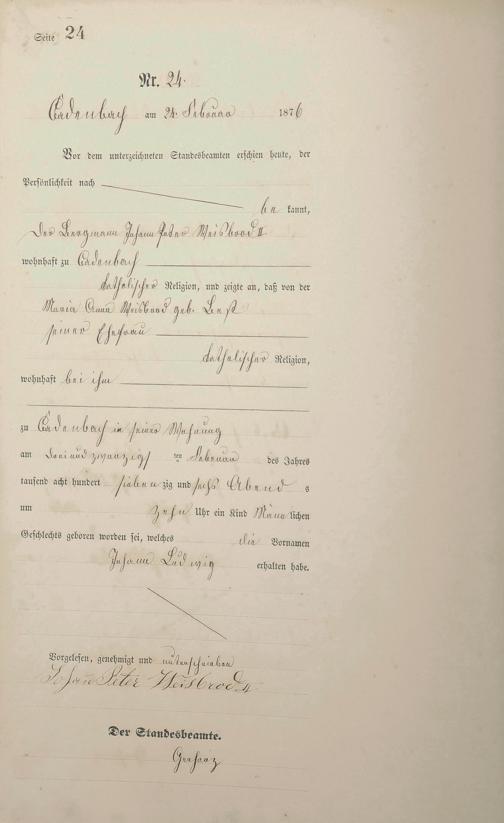 Seite 24
Nr. 24.
Cadenbach am 24. Februar 1876
Vor dem unterzeichneten Standesbeamten erschien heute, der
Persönlichkeit nach
be kannt,
Der Bergmann Johann Peter Weisbrod II
wohnhaft zu Cadenbach
katholischer Religion, und zeigte an, daß von der
Maria Anna Weisbrod geb. Best
seiner Ehefrau
katholischer Religion,
wohnhaft bei ihm
zu Cadenbach in seiner Wohnung
am dreiundzwanzigs ten Februar des Jahres
tausend acht hundert sieben zig und sechs Abend s
um zehn Uhr ein Kind Männ lichen
Geschlechts geboren worden sei, welches die Vornamen
Johann Ludwig erhalten habe.
Vorgelesen, genehmigt und unterschrieben
Johann Peter Weisbrod II
Der Standesbeamte.